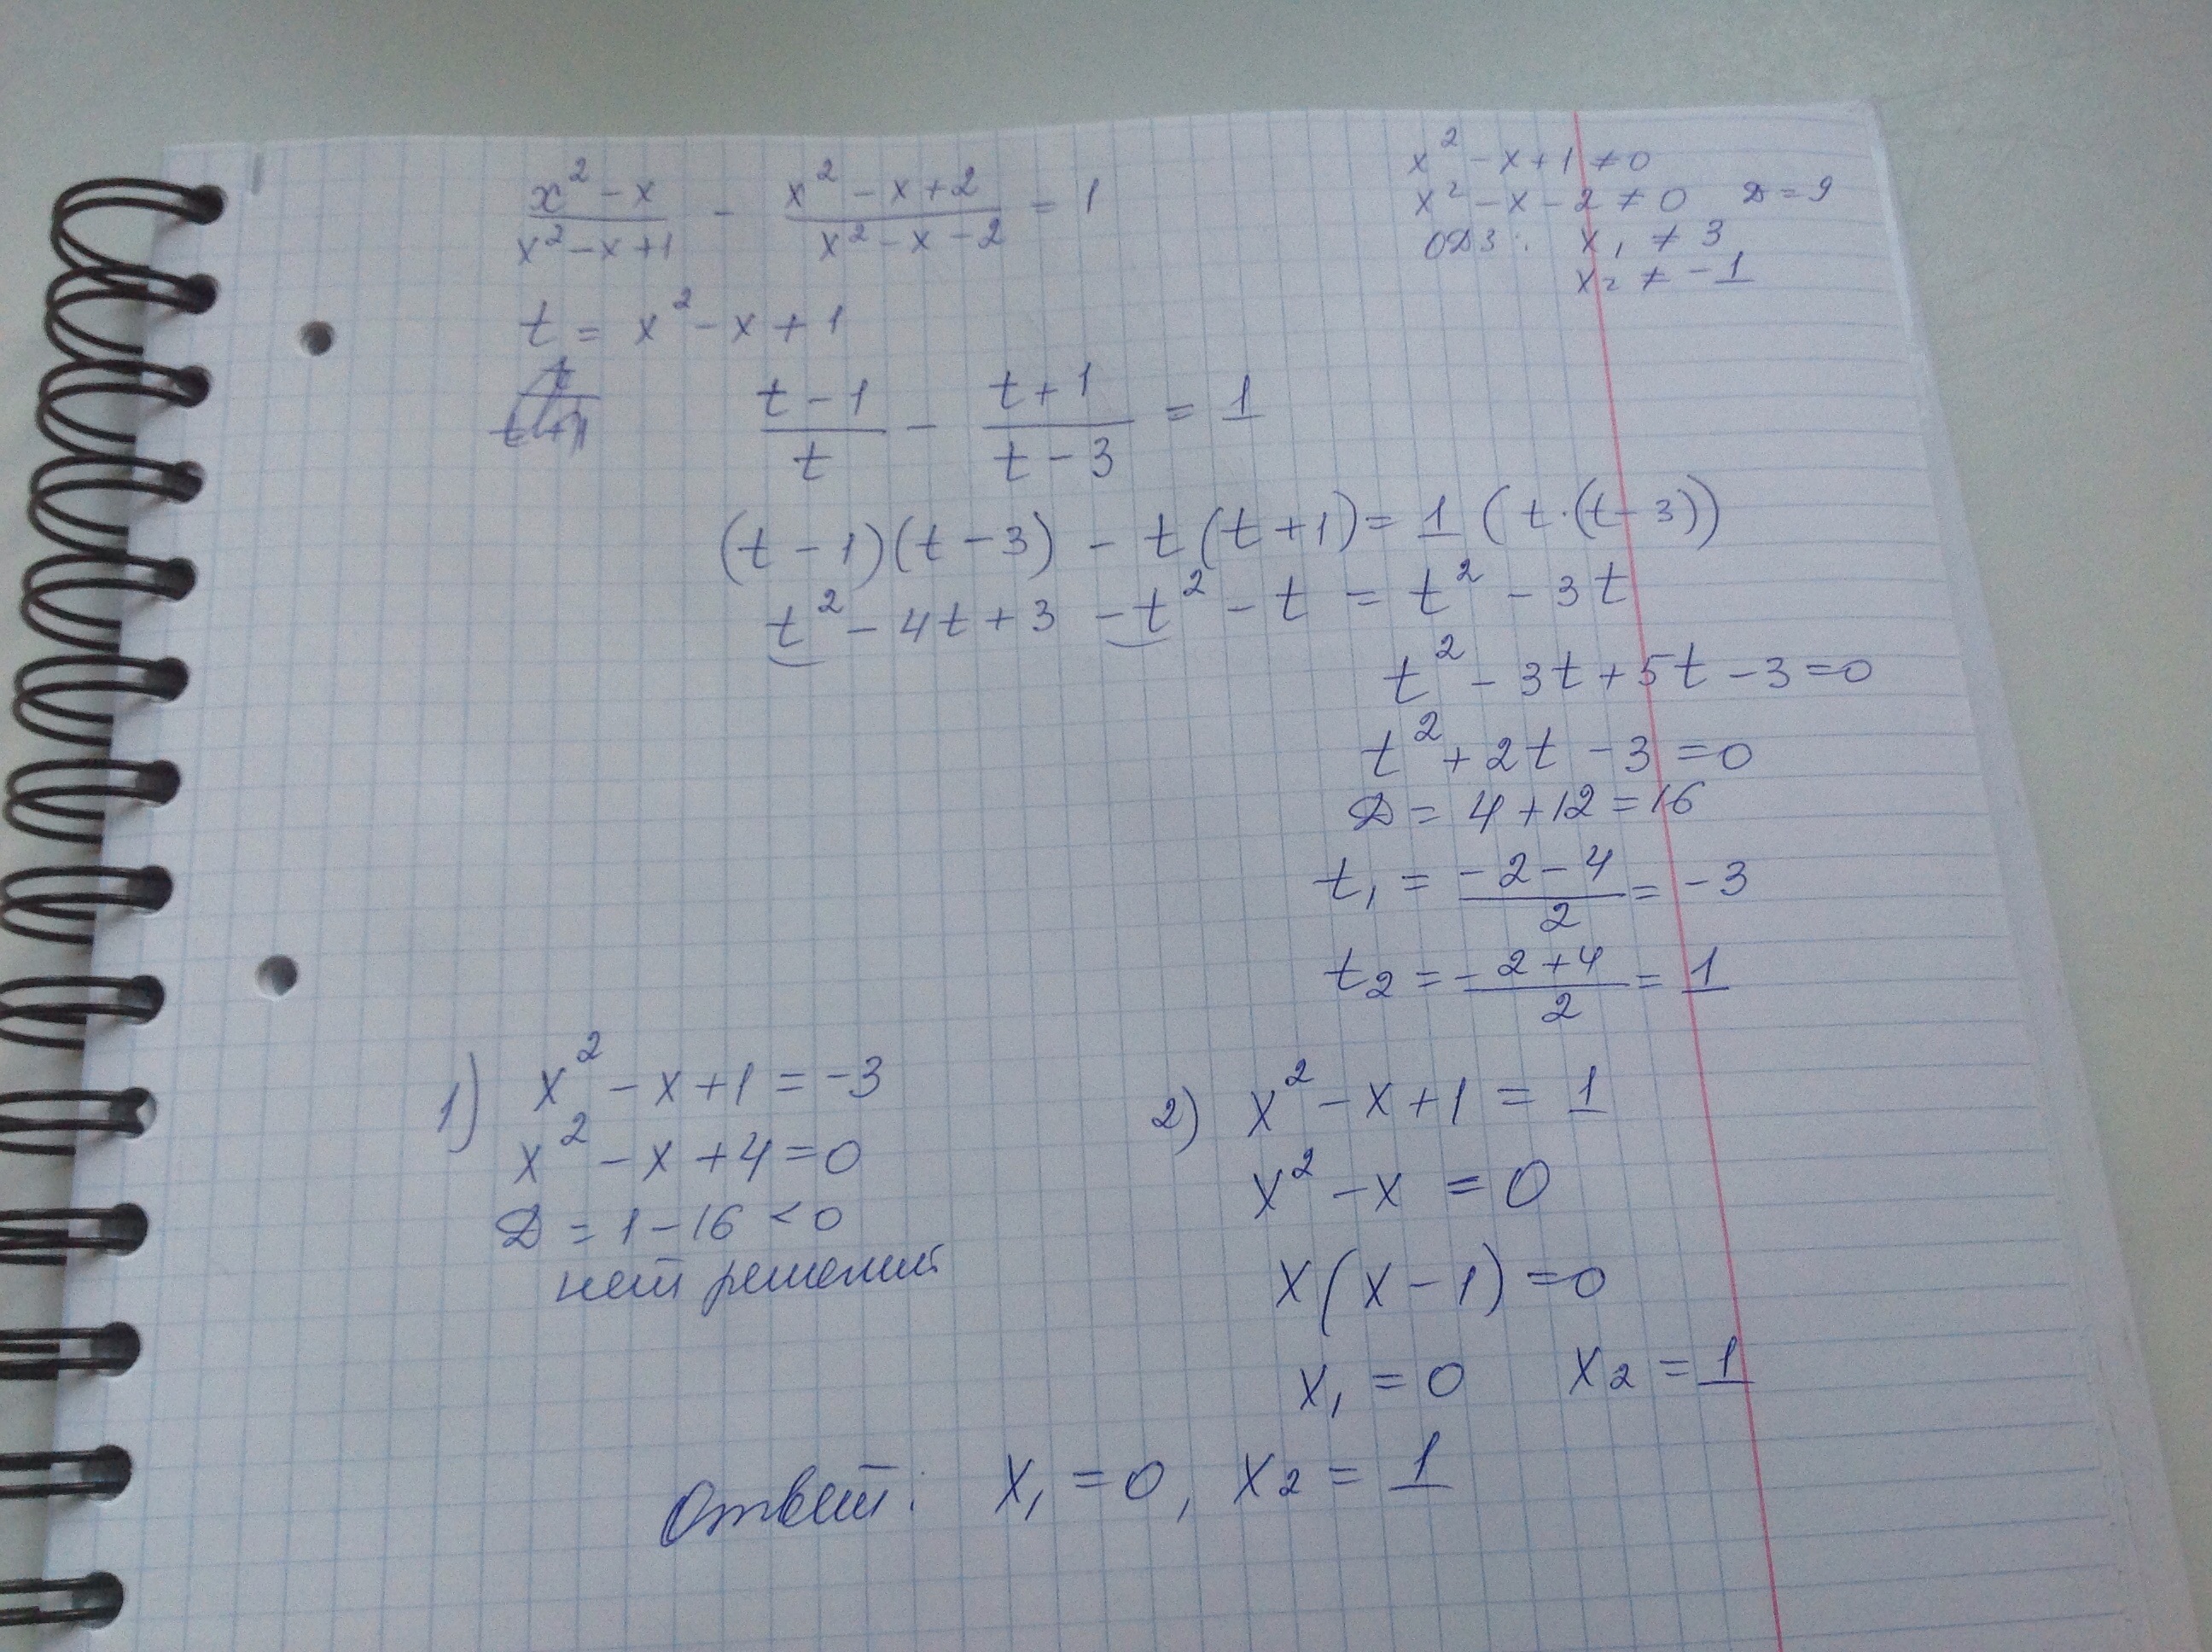 (x² - x)/(x² - x + 1) - (x² - x + 2)/(x² - x - 2) = 1
x² - x + 1 ≠ 0
x² - x - 2 ≠ 0 D = 9
ОДЗ: x₁ ≠ 3
x₂ ≠ -1
t = x² - x + 1
(t - 1)/t - (t + 1)/(t - 3) = 1
(t - 1)(t - 3) - t(t + 1) = 1 (t·(t - 3))
t² - 4t + 3 - t² - t = t² - 3t
t² - 3t + 5t - 3 = 0
t² + 2t - 3 = 0
D = 4 + 12 = 16
t₁ = (-2 - 4)/2 = -3
t₂ = (-2 + 4)/2 = 1
1) x² - x + 1 = -3
x² - x + 4 = 0
D = 1 - 16 < 0
нет решений
2) x² - x + 1 = 1
x² - x = 0
x(x - 1) = 0
x₁ = 0 x₂ = 1
Ответ: x₁ = 0, x₂ = 1